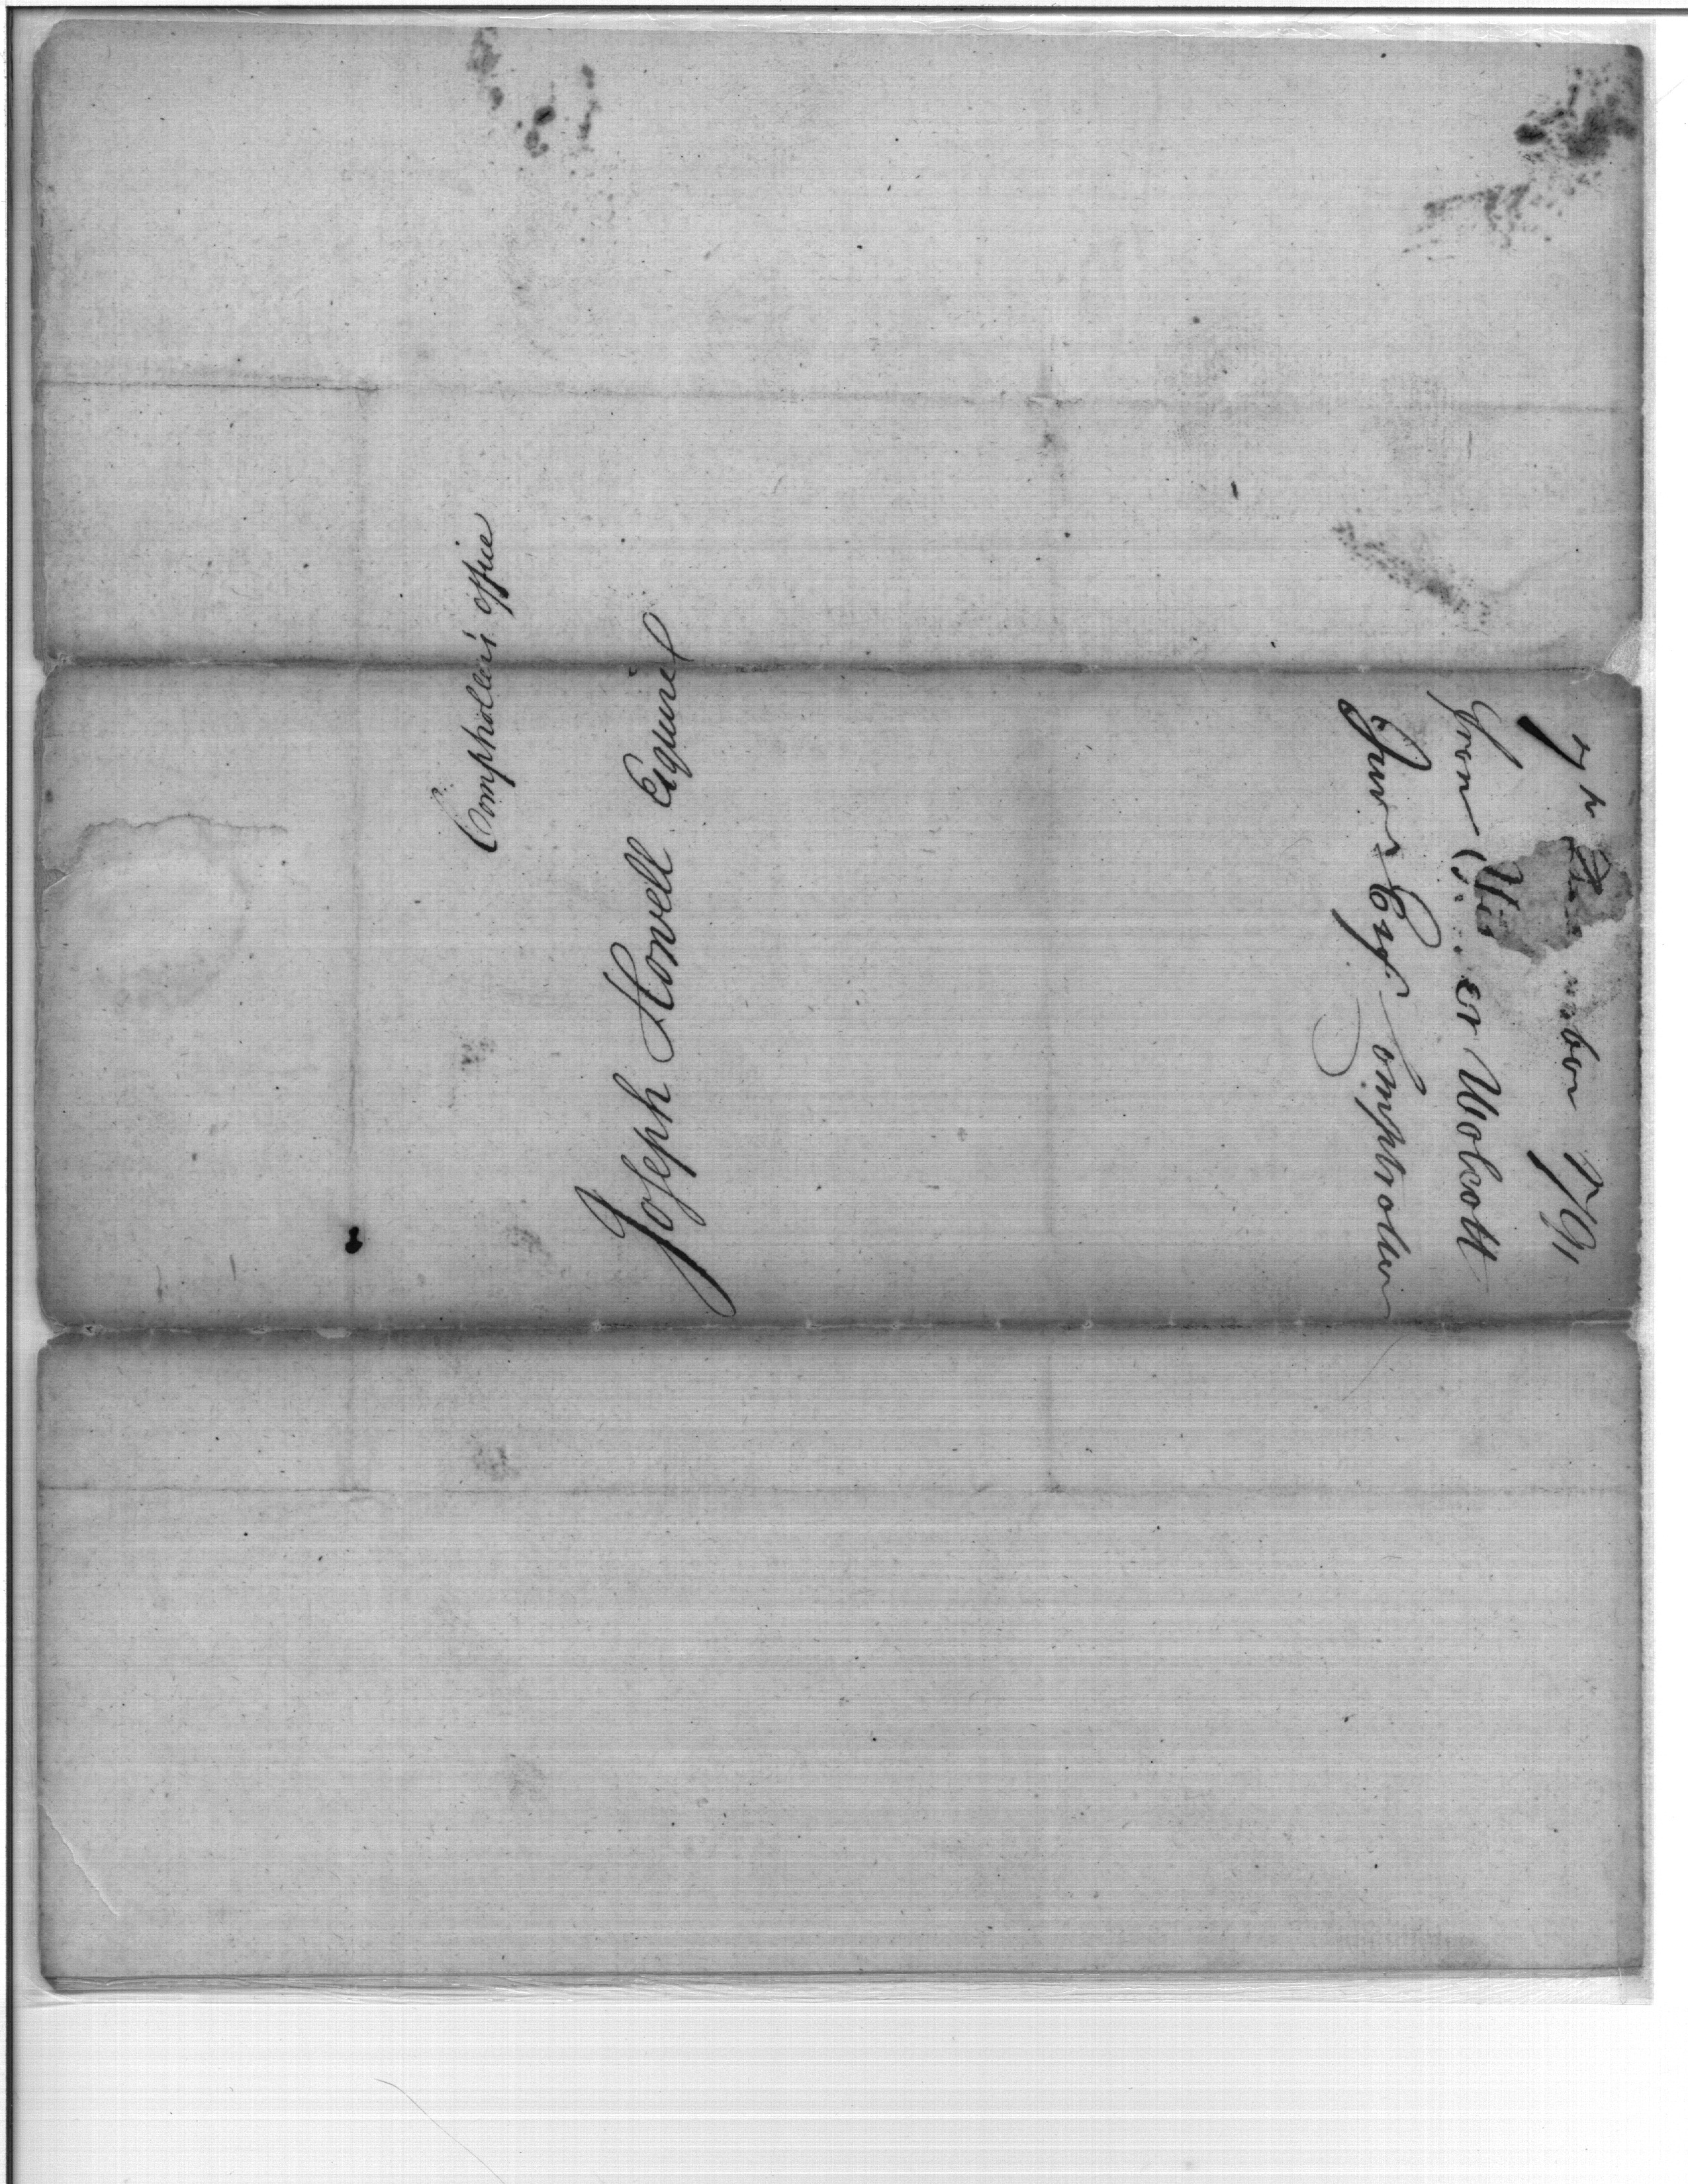 Comptroller's office
Joseph Howell Esquire
7th 1791
From Wolcott
Junr Esqr Comptroller